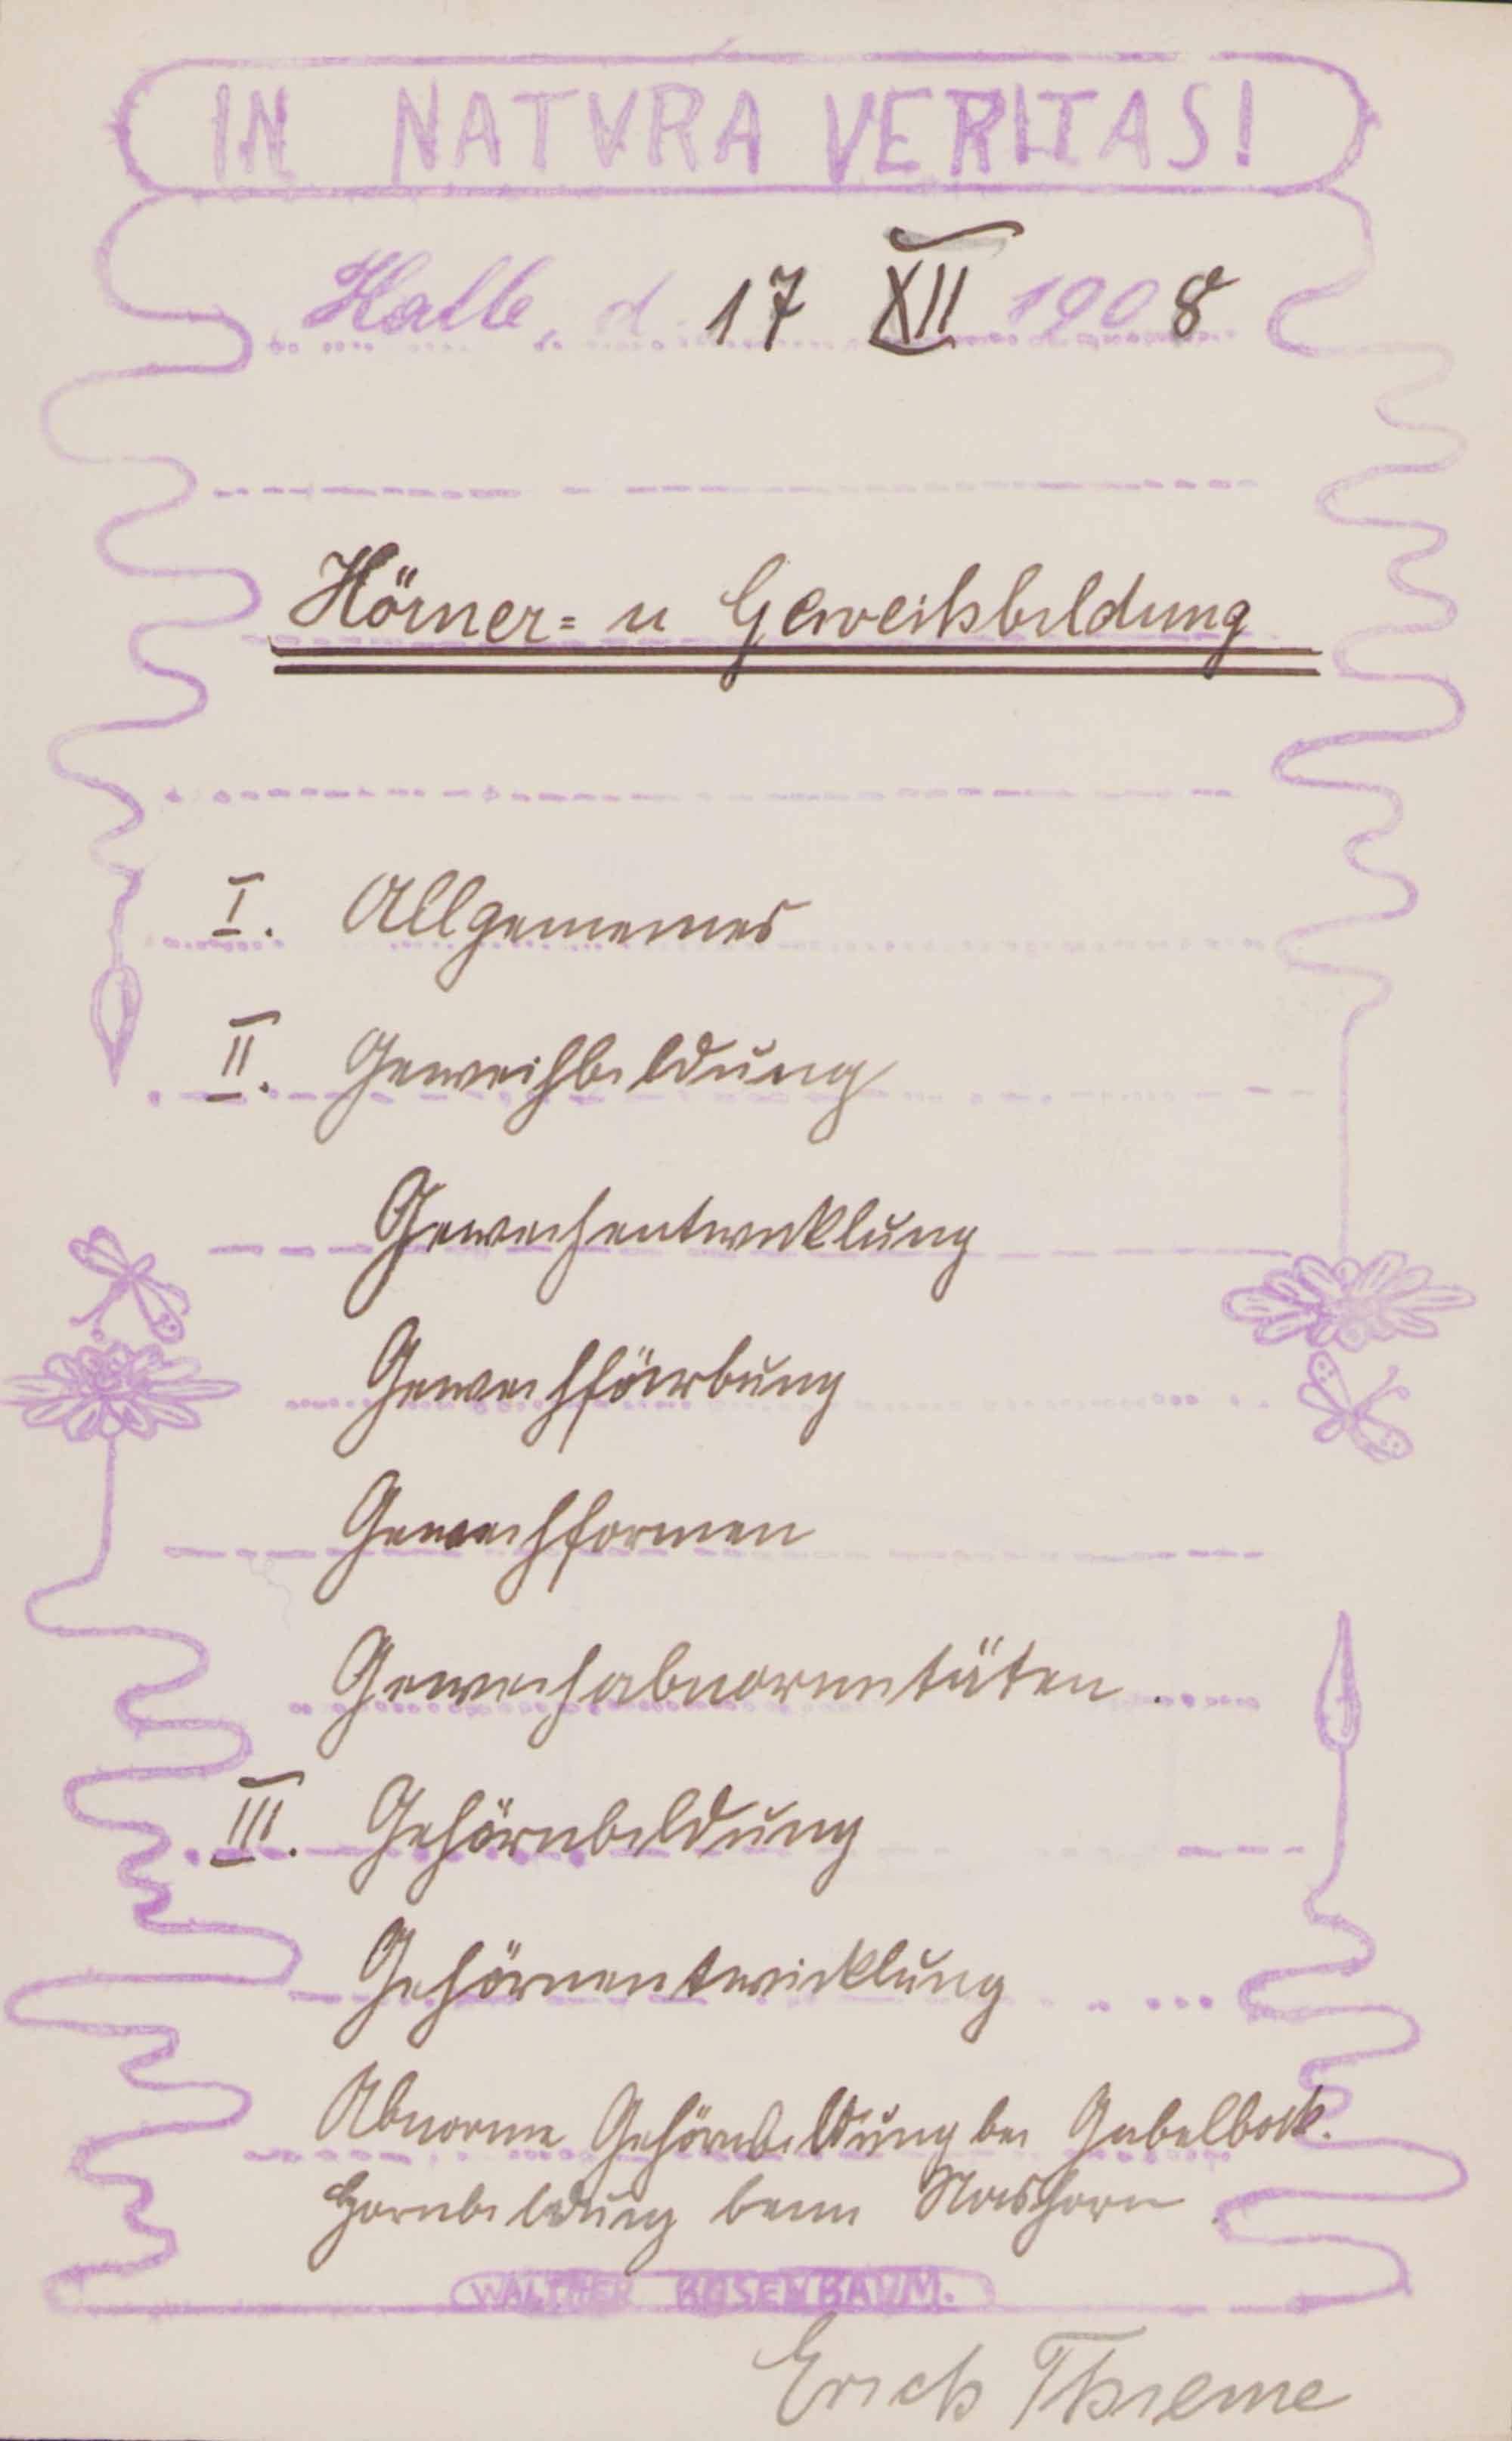 IN NATVRA VERITAS!
Halle, d. 17 XII 1908
Hörner= u Geweihbildung
I. Allgemeines
II. Geweihbildung
Geweihentwicklung
Geweihfärbung
Geweihformen
Geweihabnormitäten.
III. Gehörnbildung
Gehörnentwicklung
Abnorme Gehörnbildung bei Gabelbock.
Hornbildung beim Nashorn.
WALTHER ROSENBAUM.
Erich Thieme